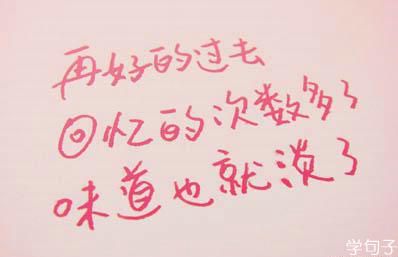 再好的过去
回忆的次数多了
味道也就淡了
学句子